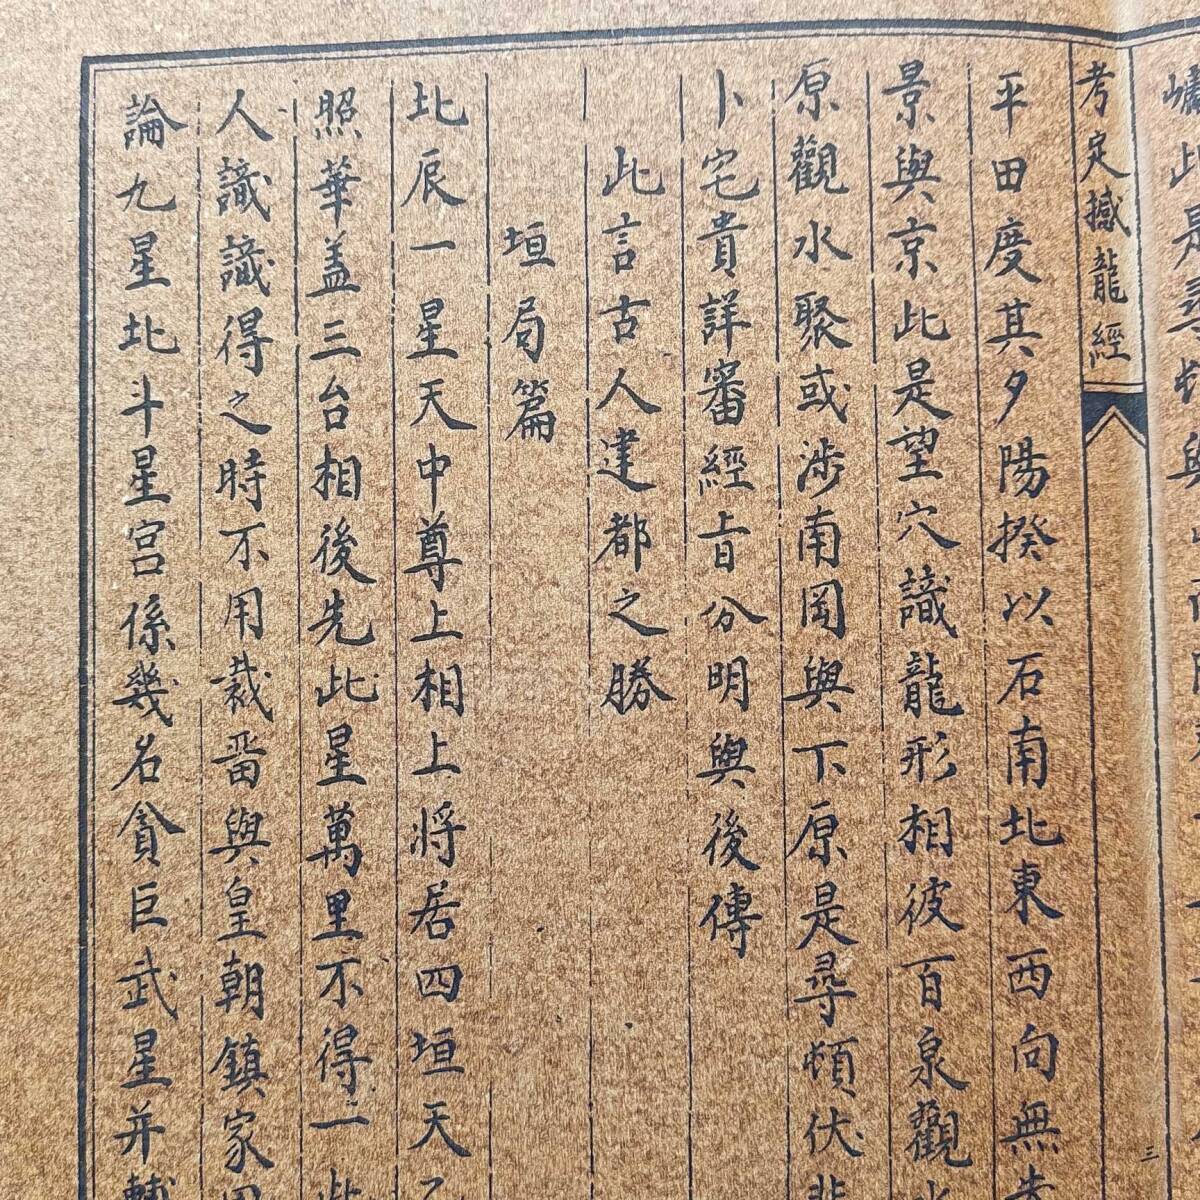 考定撼龍經
平田度其夕陽揆以石南北東西向無
景與京此是望穴識龍形相彼百泉觀
原觀水聚或涉南岡與下原是尋頓伏
卜宅貴詳審經旨分明與後傳
此言古人建都之勝
垣局篇
北辰一星天中尊上相上將居四垣天乙
照華盖三台相後先此星萬里不得一此
人識識得之時不用裁畱與皇朝鎮家國
論九星北斗星宮係幾名貪巨武星并輔
三